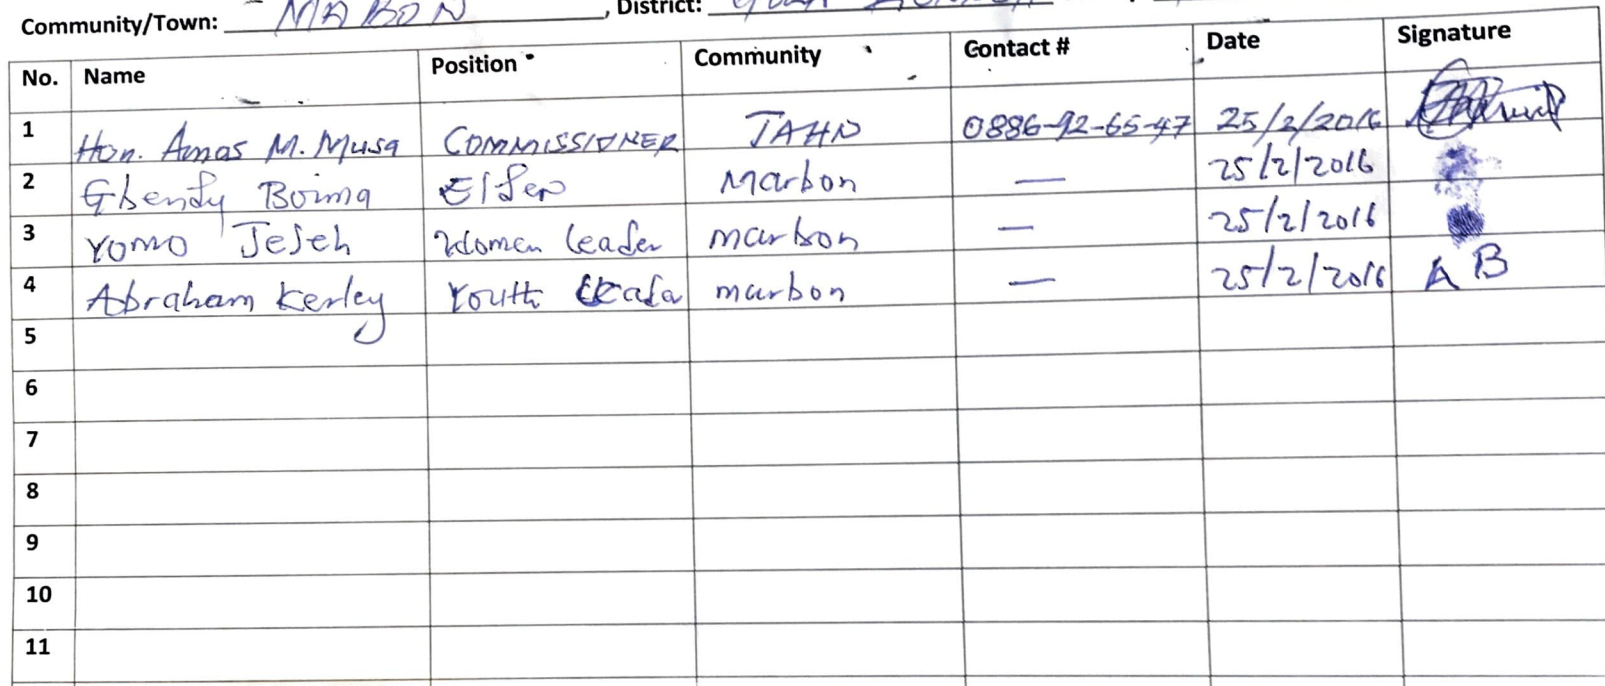 Community/Town: MABON, District:
No. Name Position Community Contact # Date Signature
1 Hon. Amos M. Musa COMMISSIONER TAHN 0886-92-65-47 25/2/2016
2 Gbendy Boima Elder Marbon — 25/2/2016
3 Yomo Jeseh Women leader marbon — 25/2/2016
4 Abraham Kerley Youth leader marbon — 25/2/2016 AB
5
6
7
8
9
10
11